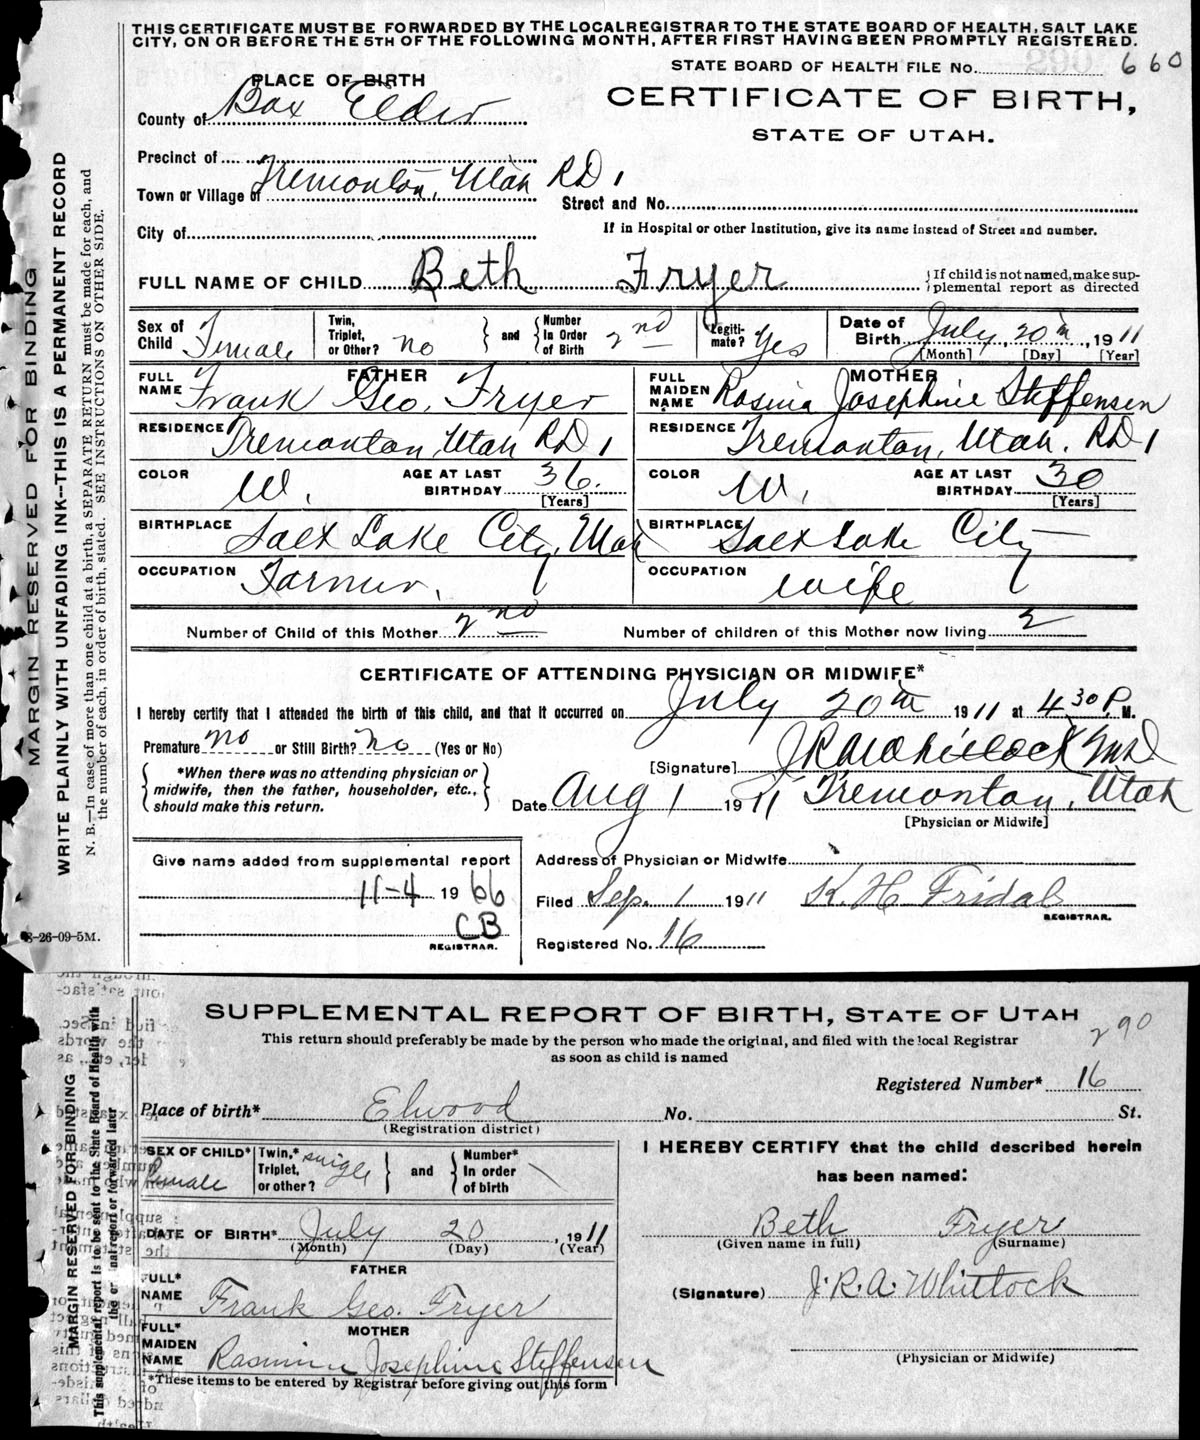 THIS CERTIFICATE MUST BE FORWARDED BY THE LOCAL REGISTRAR TO THE STATE BOARD OF HEALTH, SALT LAKE
CITY, ON OR BEFORE THE 5TH OF THE FOLLOWING MONTH, AFTER FIRST HAVING BEEN PROMPTLY REGISTERED.
STATE BOARD OF HEALTH FILE No. 290 660
PLACE OF BIRTH
County of Box Elder
CERTIFICATE OF BIRTH,
STATE OF UTAH.
Precinct of
Town or Village of Tremonton, Utah RD 1
Street and No.
City of
If in Hospital or other Institution, give its name instead of Street and number.
FULL NAME OF CHILD Beth Fryer
If child is not named, make sup-
plemental report as directed
Sex of Child Female
Twin, Triplet, or Other? no
and
Number In Order of Birth 2nd
Legiti-mate? Yes
Date of Birth July, 20th, 1911
[Month] [Day] [Year]
FATHER
FULL NAME Frank Geo. Fryer
MOTHER
FULL MAIDEN NAME Rasmia Josephine Steffensen
RESIDENCE Tremonton, Utah RD 1
RESIDENCE Tremonton, Utah. RD 1
COLOR W. AGE AT LAST BIRTHDAY 36. [Years]
COLOR W. AGE AT LAST BIRTHDAY 30 [Years]
BIRTHPLACE Salt Lake City, Utah
BIRTHPLACE Salt Lake City
OCCUPATION Farmer.
OCCUPATION wife
Number of Child of this Mother 2nd
Number of children of this Mother now living 2
CERTIFICATE OF ATTENDING PHYSICIAN OR MIDWIFE*
I hereby certify that I attended the birth of this child, and that it occurred on July 20th 1911 at 4 30 P. M.
Premature no or Still Birth? no (Yes or No)
[Signature] J R A Whitlock M.D
*When there was no attending physician or
midwife, then the father, householder, etc.,
should make this return.
Date Aug 1 1911 Tremonton, Utah
[Physician or Midwife]
Give name added from supplemental report
11-4 1966
CB
REGISTRAR.
Address of Physician or Midwife
Filed Sep. 1 1911 K. H Fridal
REGISTRAR.
Registered No. 16
8-26-09-5M.
MARGIN RESERVED FOR BINDING
WRITE PLAINLY WITH UNFADING INK--THIS IS A PERMANENT RECORD
N. B.—In case of more than one child at a birth, a SEPARATE RETURN must be made for each, and
the number of each, in order of birth, stated. SEE INSTRUCTIONS ON OTHER SIDE.
SUPPLEMENTAL REPORT OF BIRTH, STATE OF UTAH
290
This return should preferably be made by the person who made the original, and filed with the local Registrar
as soon as child is named
Registered Number* 16
Place of birth* Elwood No. St.
(Registration district)
SEX OF CHILD* Female
Twin,* Triplet, or other? single
and
Number* In order of birth
I HEREBY CERTIFY that the child described herein
has been named:
DATE OF BIRTH* July 20, 1911
(Month) (Day) (Year)
Beth Fryer
(Given name in full) (Surname)
FATHER
FULL* NAME Frank Geo. Fryer
(Signature) J. R. A. Whitlock
MOTHER
FULL* MAIDEN NAME Rasmina Josephine Steffensen
(Physician or Midwife)
*These items to be entered by Registrar before giving out this form
MARGIN RESERVED FOR BINDING
This supplemental report is to be sent to the State Board of Health with